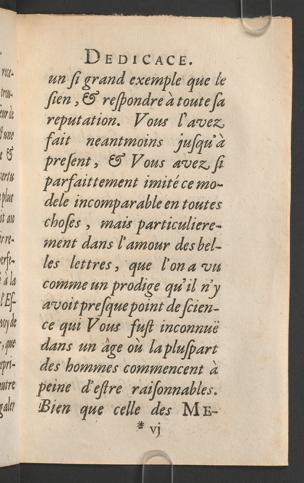 DEDICACE.
un ſi grand exemple que le
ſien, & reſpondre à toute ſa
reputation. Vous l'avez
fait neantmoins juſqu'à
preſent, & Vous avez ſi
parfaittement imité ce mo-
dele incomparable en toutes
choſes, mais particuliere-
ment dans l'amour des bel-
les lettres, que l'on a vu
comme un prodige qu'il n'y
avoit preſque point de ſcien-
ce qui Vous fuſt inconnuë
dans un âge où la pluſpart
des hommes commencent à
peine d'eſtre raiſonnables.
Bien que celle des ME-
* vj